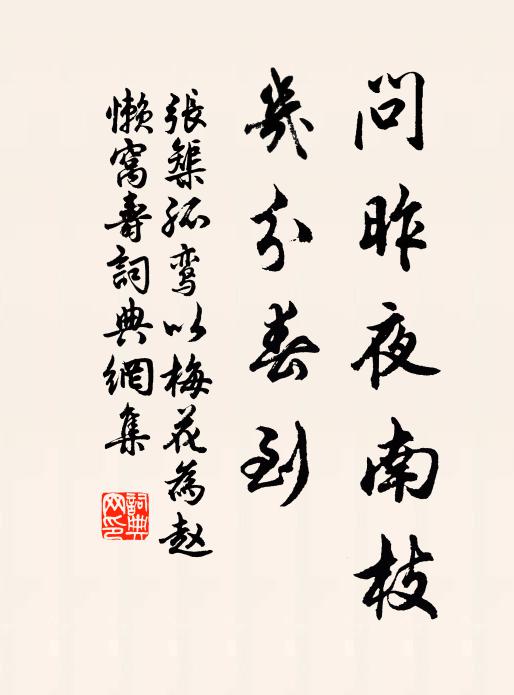 問昨夜南枝
幾分春到
張榘孤鸾以梅花為赵
懒窩壽詞典網集
詞典網印